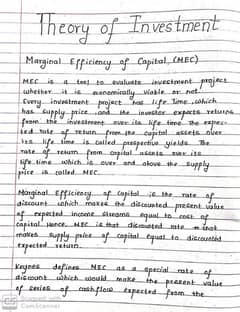 Theory of Investment
Marginal Efficiency of Capital (MEC)
MEC is a tool to evaluate investment project
whether it is economically viable or not.
Every investment project has life time, which
has supply price and the investor expects returns
from the investment over its life time. The expec-
ted rate of return from the capital assets over
its life time is called prospective yields. The
rate of return from capital assets over its
life time which is over and above the supply
price is called MEC.
Marginal Efficiency of Capital is the rate of
discount which makes the discounted present value
of expected income streams equal to cost of
capital. Hence, MEC is that discounted rate that
makes supply price of capital equal to discounted
expected return.
Keynes defines MEC as a special rate of
discount which would make the present value
of series of cashflow expected from the
Scanned with
CamScanner